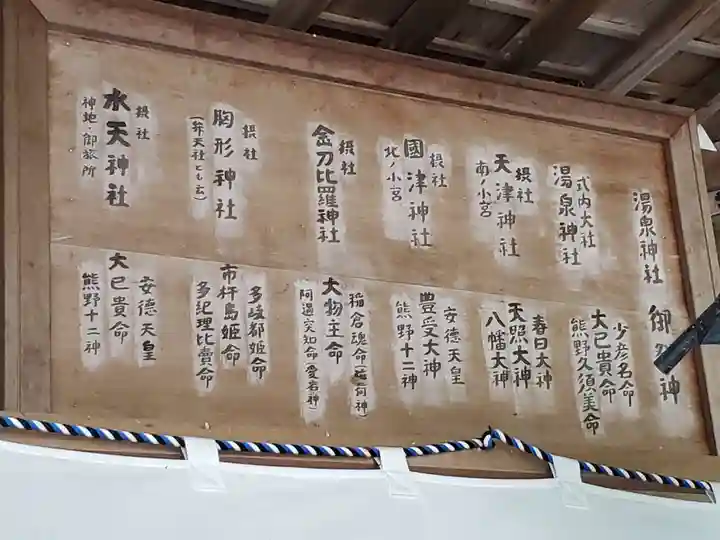 湯泉神社
式内大社
湯泉神社
摂社
天津神社
南ノ小宮
摂社
國津神社
北ノ小宮
摂社
金刀比羅神社
摂社
胸形神社
(弁天社とも云)
摂社
水天神社
神地・御旅所
御祭神
少彦名命
大已貴命
熊野久須美命
春日大神
天照大神
八幡大神
安德天皇
豊受大神
熊野十二神
稲倉魂命(稲荷神)
大物主命
阿遇突知命(愛宕神)
多岐都姫命
市杵島姫命
多紀理比賣命
安德天皇
大已貴命
熊野十二神